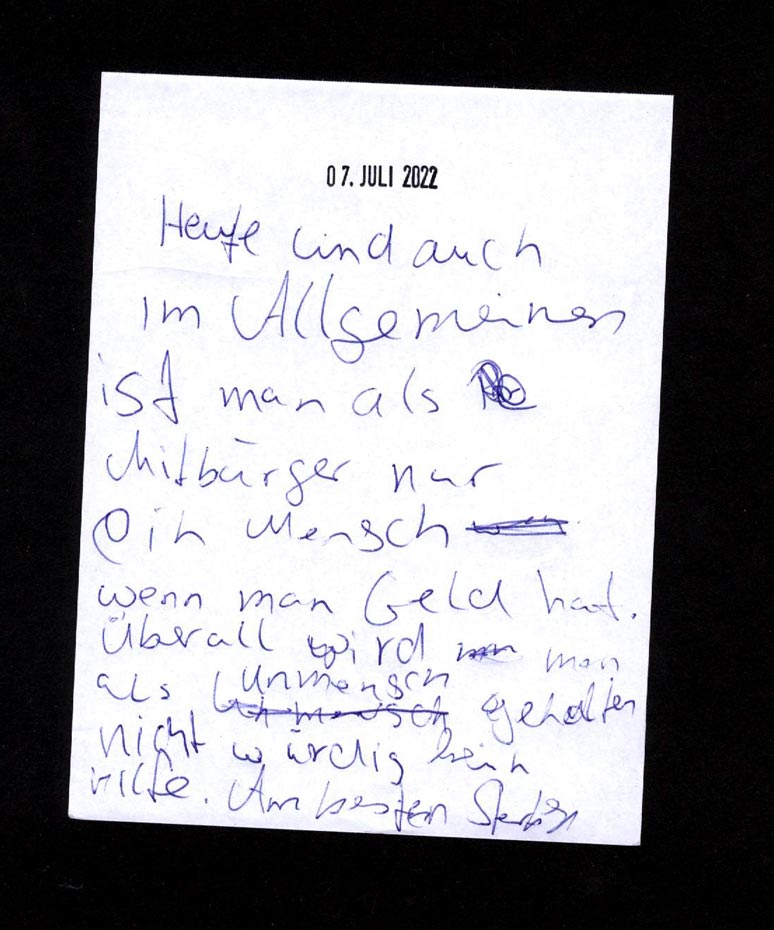 07. JULI 2022
Heute und auch
im Allgemeinen
ist man als
Mitbürger nur
ein Mensch
wenn man Geld hat.
Überall wird man
als Unmensch gehalten
nicht würdig kein
Hilfe. Am besten Sterben